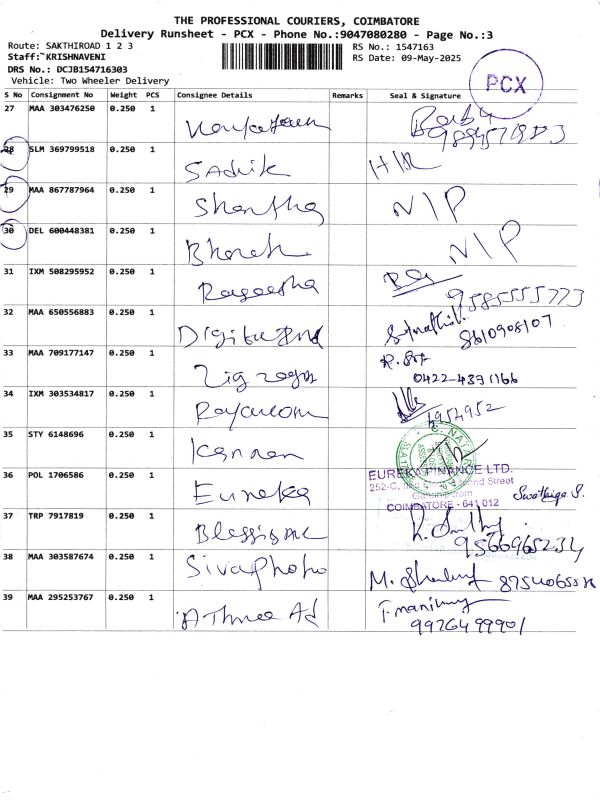 THE PROFESSIONAL COURIERS, COIMBATORE
Delivery Runsheet - PCX - Phone No.:9047080280 - Page No.:3
Route: SAKTHIROAD 1 2 3
Staff: KRISHNAVENI
DRS No.: DCJB154716303
Vehicle: Two Wheeler Delivery
RS No.: 1547163
RS Date: 09-May-2025
PCX
S No Consignment No Weight PCS Consignee Details Remarks Seal & Signature
27 MAA 303476250 0.250 1
28 SLM 369799518 0.250 1 Sadvik
29 MAA 867787964 0.250 1 Shantha N/P
30 DEL 600448381 0.250 1 Bharath N/P
31 IXM 508295952 0.250 1 Rageesha 9585555773
32 MAA 650556883 0.250 1 8610908107
33 MAA 709177147 0.250 1 0422-4391166
34 IXM 303534817 0.250 1
35 STY 6148696 0.250 1 Kannan
36 POL 1706586 0.250 1 Eureka EUREKA FINANCE LTD.
252-C, Street
COIMBATORE - 641 012
Swathiga S.
37 TRP 7917819 0.250 1 9566965234
38 MAA 303587674 0.250 1 Sivaphoto
39 MAA 295253767 0.250 1 Athree Ad 9976499901